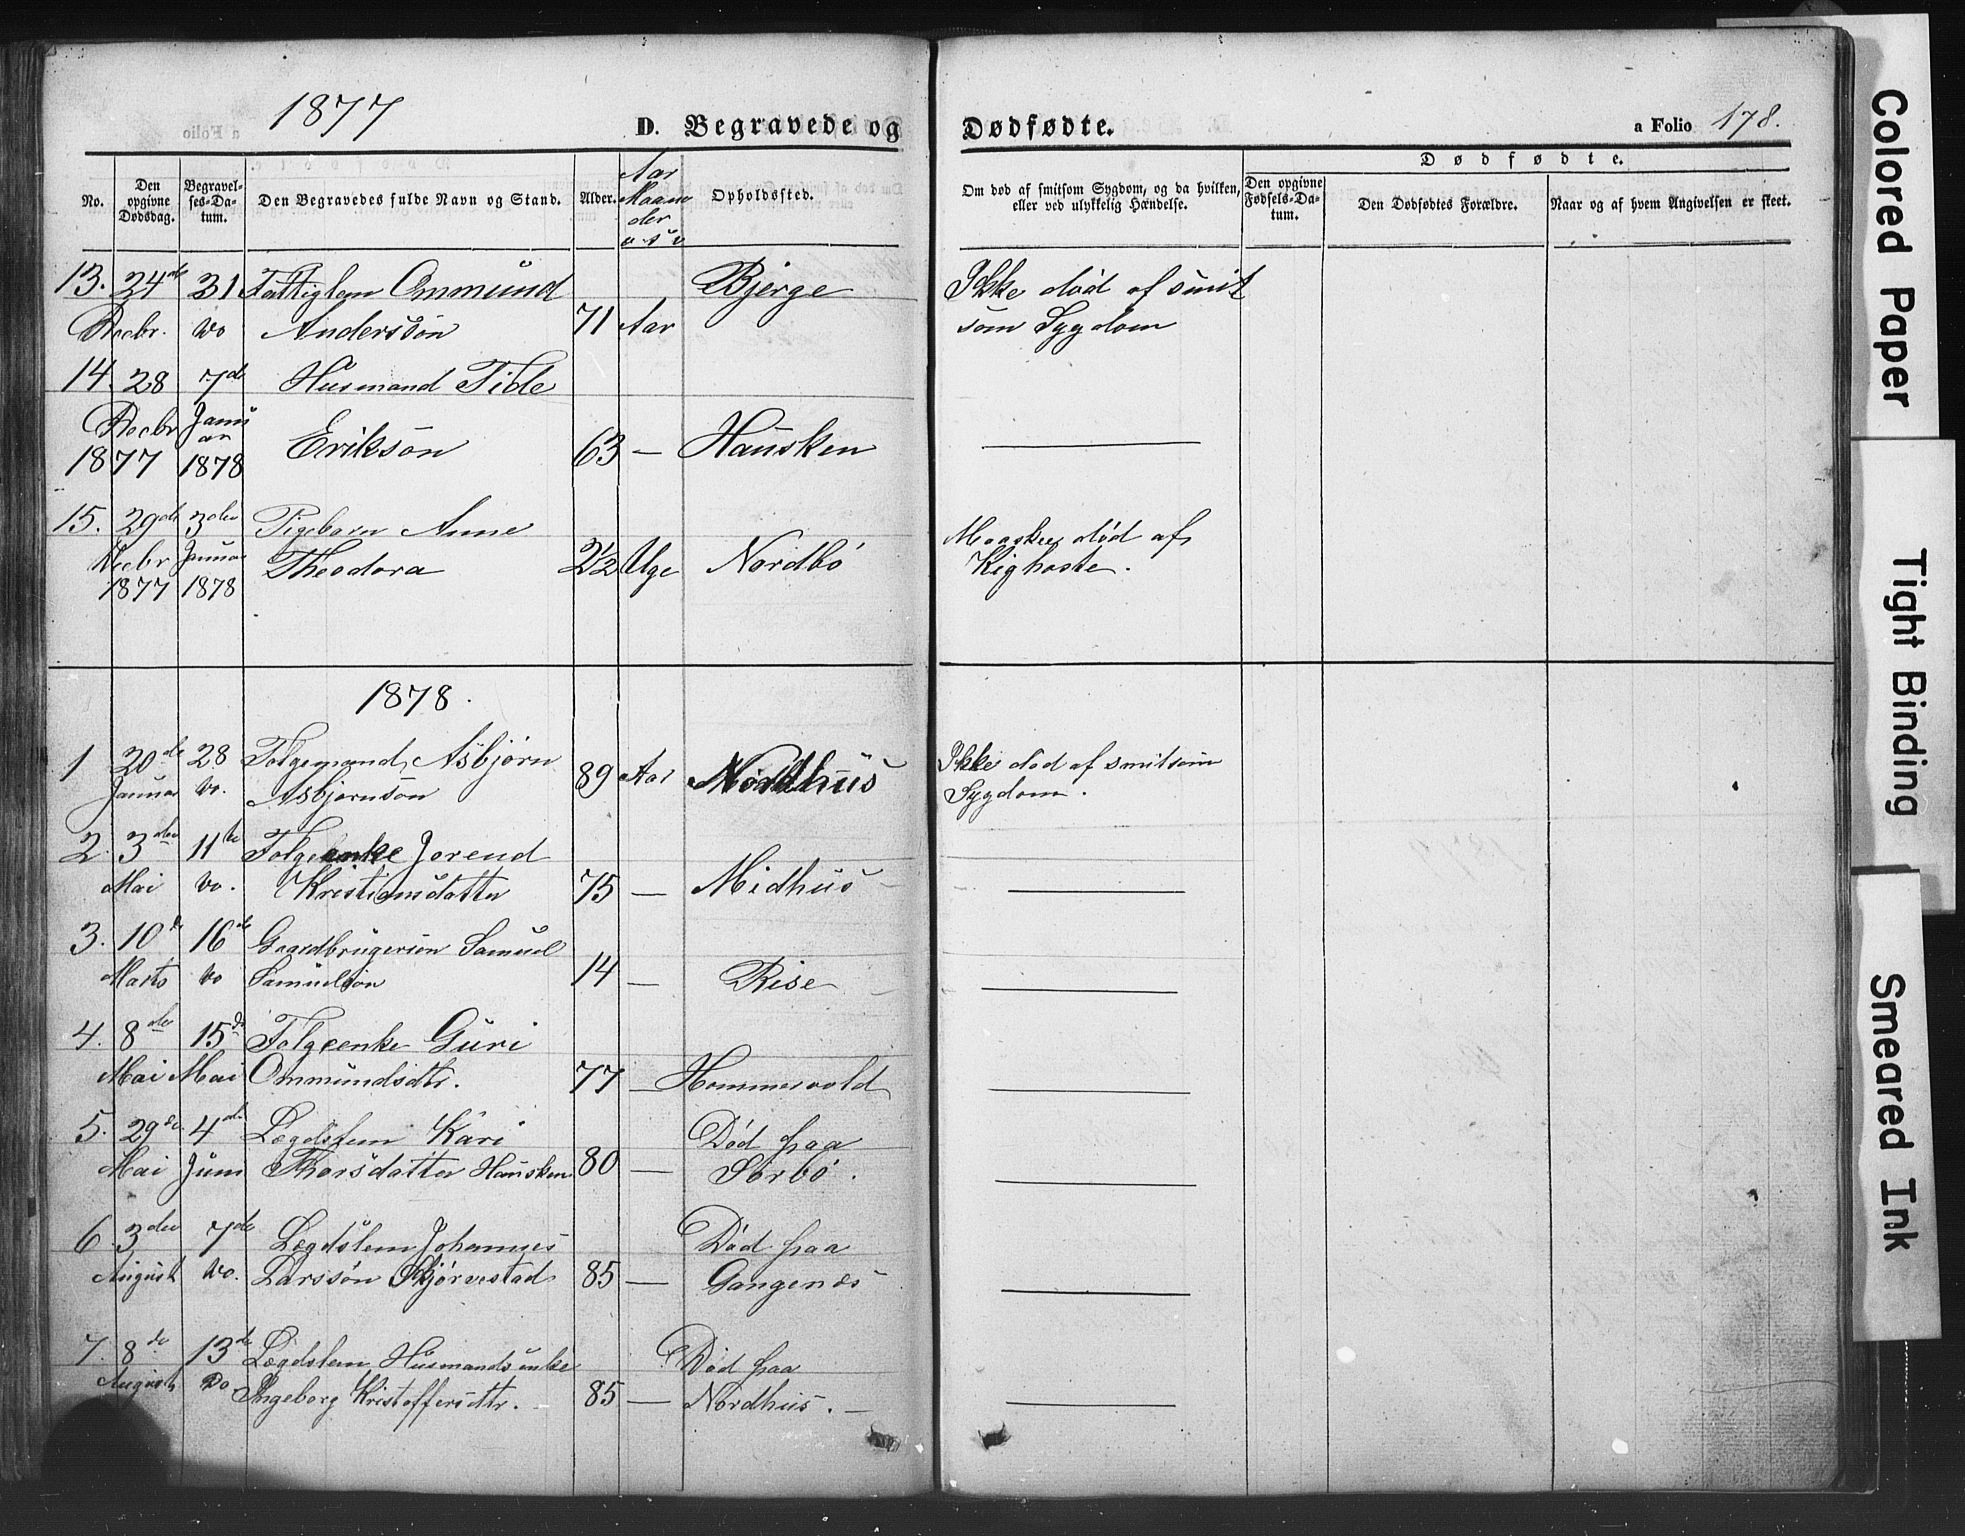 1877
D. Begravede og
Dødfødte.
a Folio 178.
No.
Den opgivne Dødsdag.
Begravelses-Datum.
Den Begravedes fulde Navn og Stand.
Alder.
Aar Maaneder o s v
Opholdssted.
Om død af smitsom Sygdom, og da hvilken, eller ved ulykkelig Hændelse.
Dødfødte.
Den opgivne Fødsels-Datum.
Den Dødfødtes Forældre.
Naar og af hvem Angivelsen er skeet.
13. 24de 31 Fattiglem Ommund Bjerge Ikke død af smit
Decbr. do Anderssøn 71 Aar som Sygdom
14. 28 7de Husmand Tide
Decbr Januar Eriksøn 63 — Hausken
1877 1878
15. 29de 3den Pigebarn Anne Maaskee død af
Decbr Januar Theodora 2 1/2 Uge Nordbø Kighoste.
1877 1878
1878.
1 20de 28 Folgemand Asbjørn 89 Aar Nordhus Ikke død af smitsom
Januar do. Asbjørnsøn Sygdom.
2. 3den 11te Folgeenke Jorend
Mai do. Kristiansdatter 75 — Midhus
3. 10de 16de Gaardbrugersøn Samuel
Marts do Samuelsøn 14 — Rise
4. 8de 15de Folgeenke Guri
Mai Mai Ommundsdtr. 77 — Hommersvold
5. 29de 4de Lægdslem Kari Død paa
Mai Juni Thorsdatter Hausken 80 — Sørbø.
6. 3den 7de Lægdslem Johannes Død paa
August do. Larssøn Skjørvestad 85 — Gangenæs
7. 8de 13de Lægdslem Husmandsenke Død paa
August Do Ingeborg Kristoffersdtr. 85 — Nordhus.
Colored Paper
Tight Binding
Smeared Ink